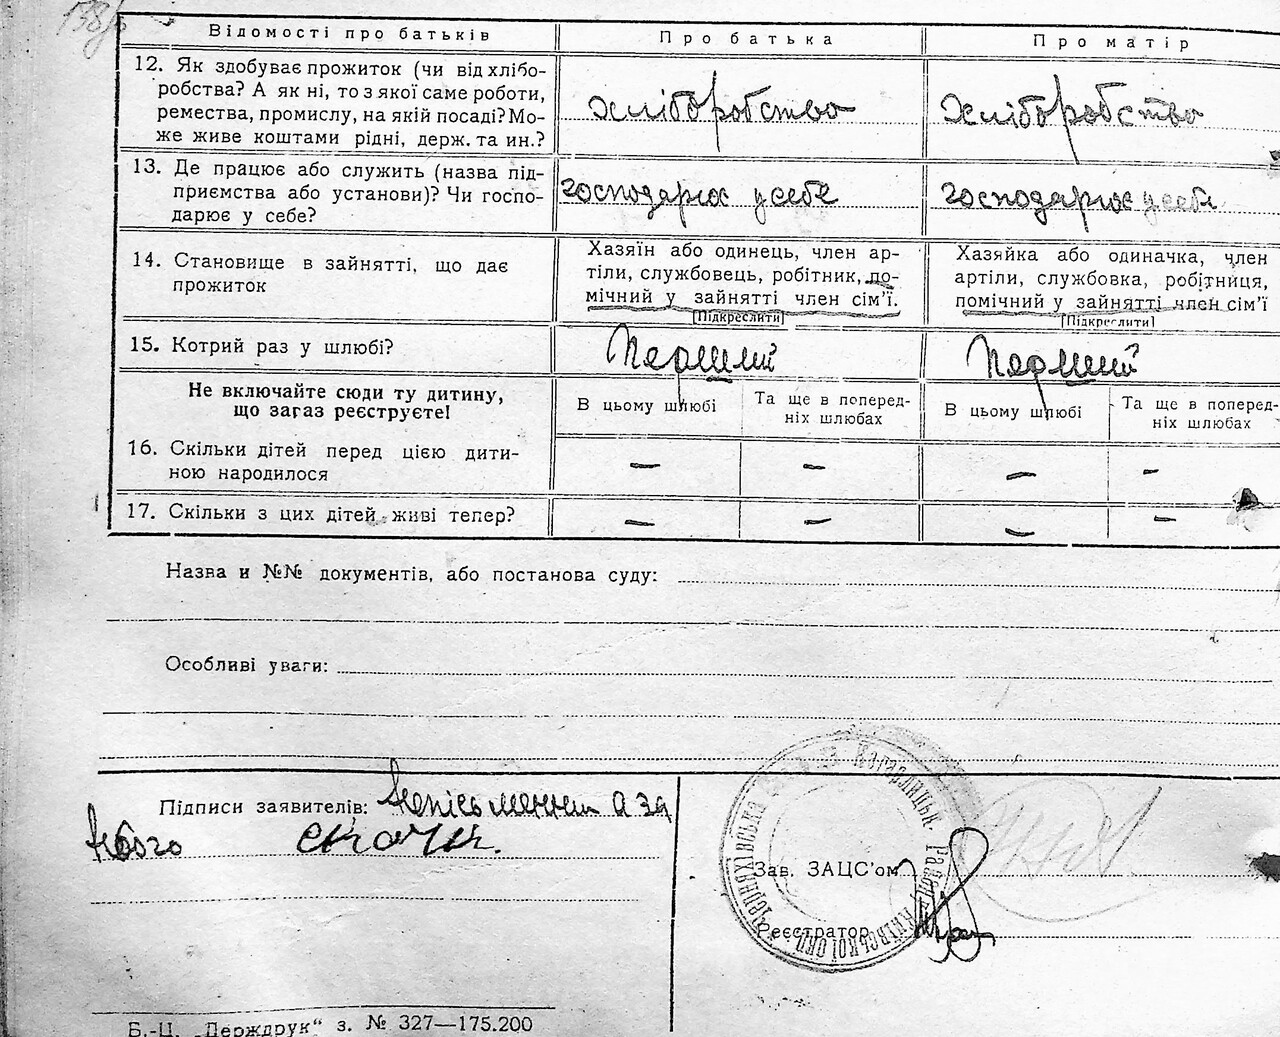 138
Відомості про батьків
Про батька
Про матір
12. Як здобуває прожиток (чи від хлібо-
робства? А як ні, то з якої саме роботи,
ремества, промислу, на якій посаді? Мо-
же живе коштами рідні, держ. та ин.?
хліборобство
хліборобство
13. Де працює або служить (назва під-
приємства або установи)? Чи госпо-
дарює у себе?
господарює у себе
господарює у себе
14. Становище в зайнятті, що дає
прожиток
Хазяїн або одинець, член ар-
тіли, службовець, робітник, по-
мічний у зайнятті член сім'ї.
[Підкреслити]
Хазяйка або одиначка, член
артіли, службовка, робітниця,
помічний у зайнятті член сім'ї
[Підкреслити]
15. Котрий раз у шлюбі?
Перший
Перший
Не включайте сюди ту дитину,
що загаз реєструєте!
В цьому шлюбі
Та ще в поперед-
ніх шлюбах
В цьому шлюбі
Та ще в поперед-
ніх шлюбах
16. Скільки дітей перед цією дити-
ною народилося
— — — —
17. Скільки з цих дітей живі тепер?
— — — —
Назва и №№ документів, або постанова суду:
Особливі уваги:
Підписи заявителів: Неписьменний а за
нього
Зав. ЗАЦС'ом
Реєстратор
Кагарлицьк. Район
Київської окр.
Б.-Ц. „Держдрук“ з. № 327—175.200